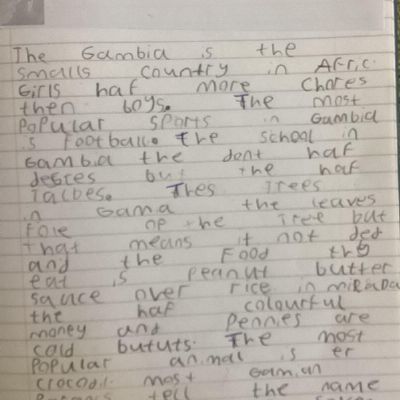 The Gambia is the
smalls country in Afric
Girls haf more Chores
then boys. The most
Popular sports in Gambia
is football. The school in
Gambia the dont haf
desces but the haf
Tacbes. Thes Trees
in Gama the leaves
fole of the Tree but
That means it not ded
and the Food thy
eat is peanut butter
sauce over rice in
the haf colourful
money and Pennies are
cald bututs. The most
Popular animal is er
crocodil. most Gam.an
tell the name